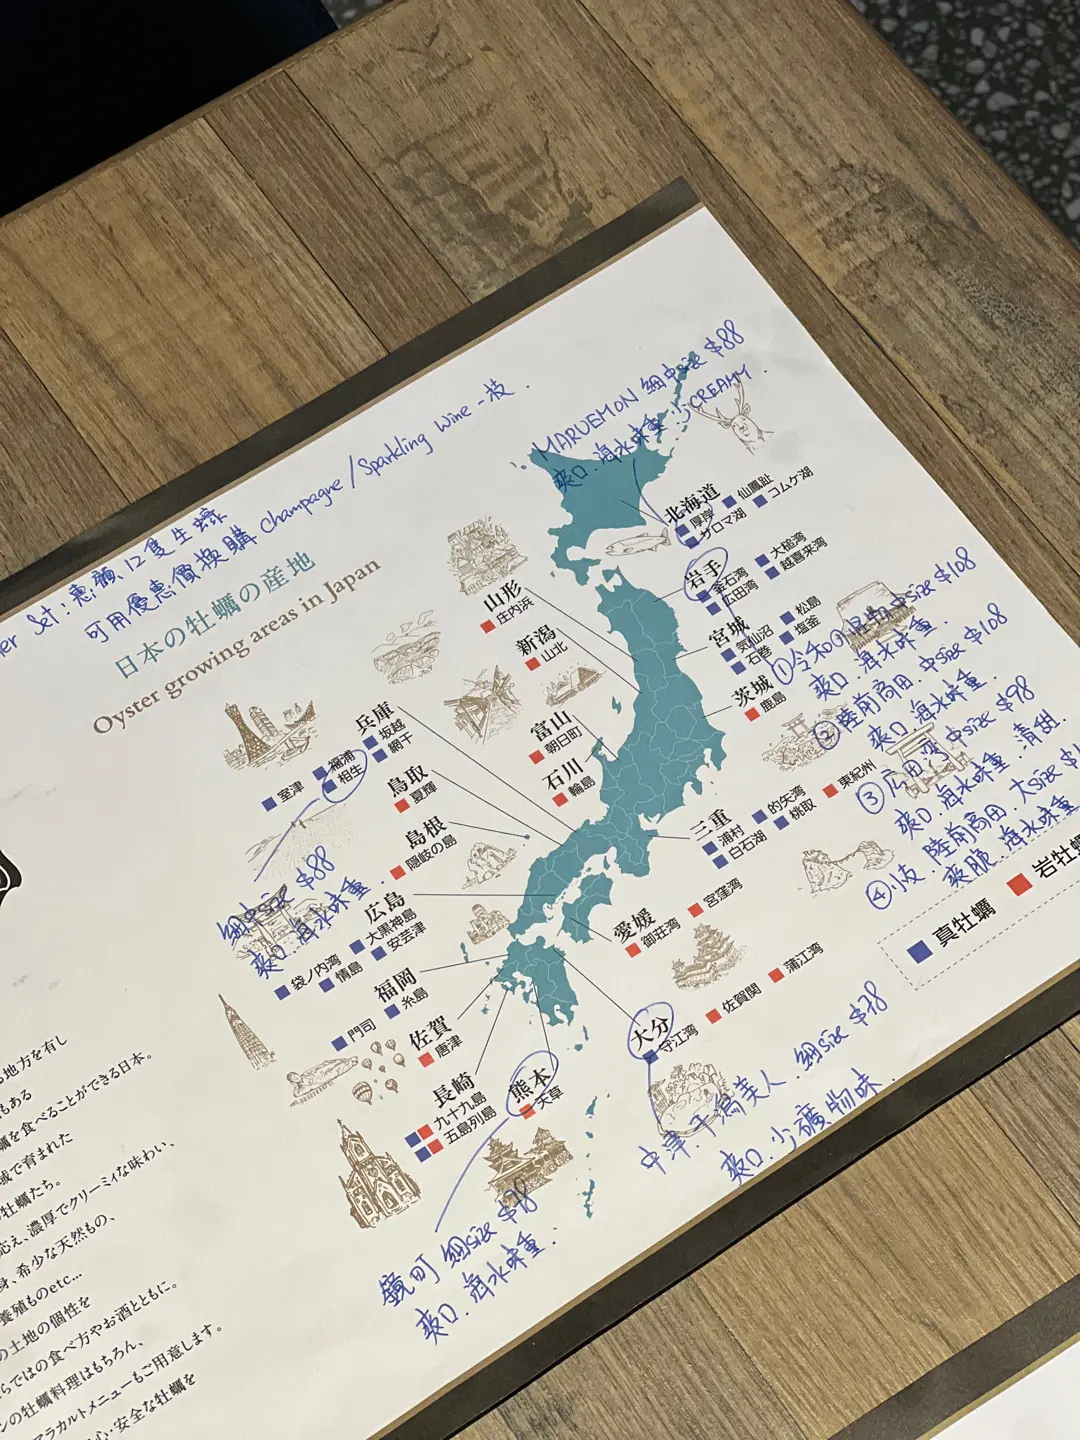 Set:惠顧12隻生蠔
可用優惠價換購 Champagne/Sparkling Wine一枝.
日本の牡蠣の産地
Oyster growing areas in Japan
MARUEMON 細中size $88
爽口.海水味重.少CREAMY.
北海道
厚岸
仙鳳趾
サロマ湖
コムケ湖
岩手
釜石湾
大槌湾
広田湾
越喜来湾
宮城
気仙沼
松島
石巻
塩釜
茨城
鹿島
山形
庄内浜
新潟
山北
富山
朝日町
石川
輪島
①令和の怪物中size $108
爽口.海水味重.
②陸前高田.中size $108
爽口.海水味重.
③広田湾中size $98
爽口.海水味重.清甜.
④小枝.陸前高田.大size
爽脆.海水味重
兵庫
坂越
福浦
網干
室津
相生
鳥取
夏輝
島根
隠岐の島
細中size $88
爽口.海水味重.
広島
大黒神島
安芸津
袋ノ内湾
情島
福岡
糸島
門司
佐賀
唐津
長崎
九十九島
五島列島
熊本
天草
三重
浦村
的矢湾
東紀州
白石湖
桃取
愛媛
御荘湾
宮窪湾
大分
守江湾
佐賀関
蒲江湾
真牡蠣
岩牡蠣
中津.干潟美人.細size $78
爽口.少礦物味.
鏡町 細size $78
爽口.海水味重.
地方を有し
もある
を食べることができる日本。
域で育まれた
牡蠣たち。
応え、濃厚でクリーミィな味わい、
身、希少な天然もの、
養殖ものetc...
の土地の個性を
らではの食べ方やお酒とともに。
ンの牡蠣料理はもちろん、
アラカルトメニューもご用意します。
心・安全な牡蠣を